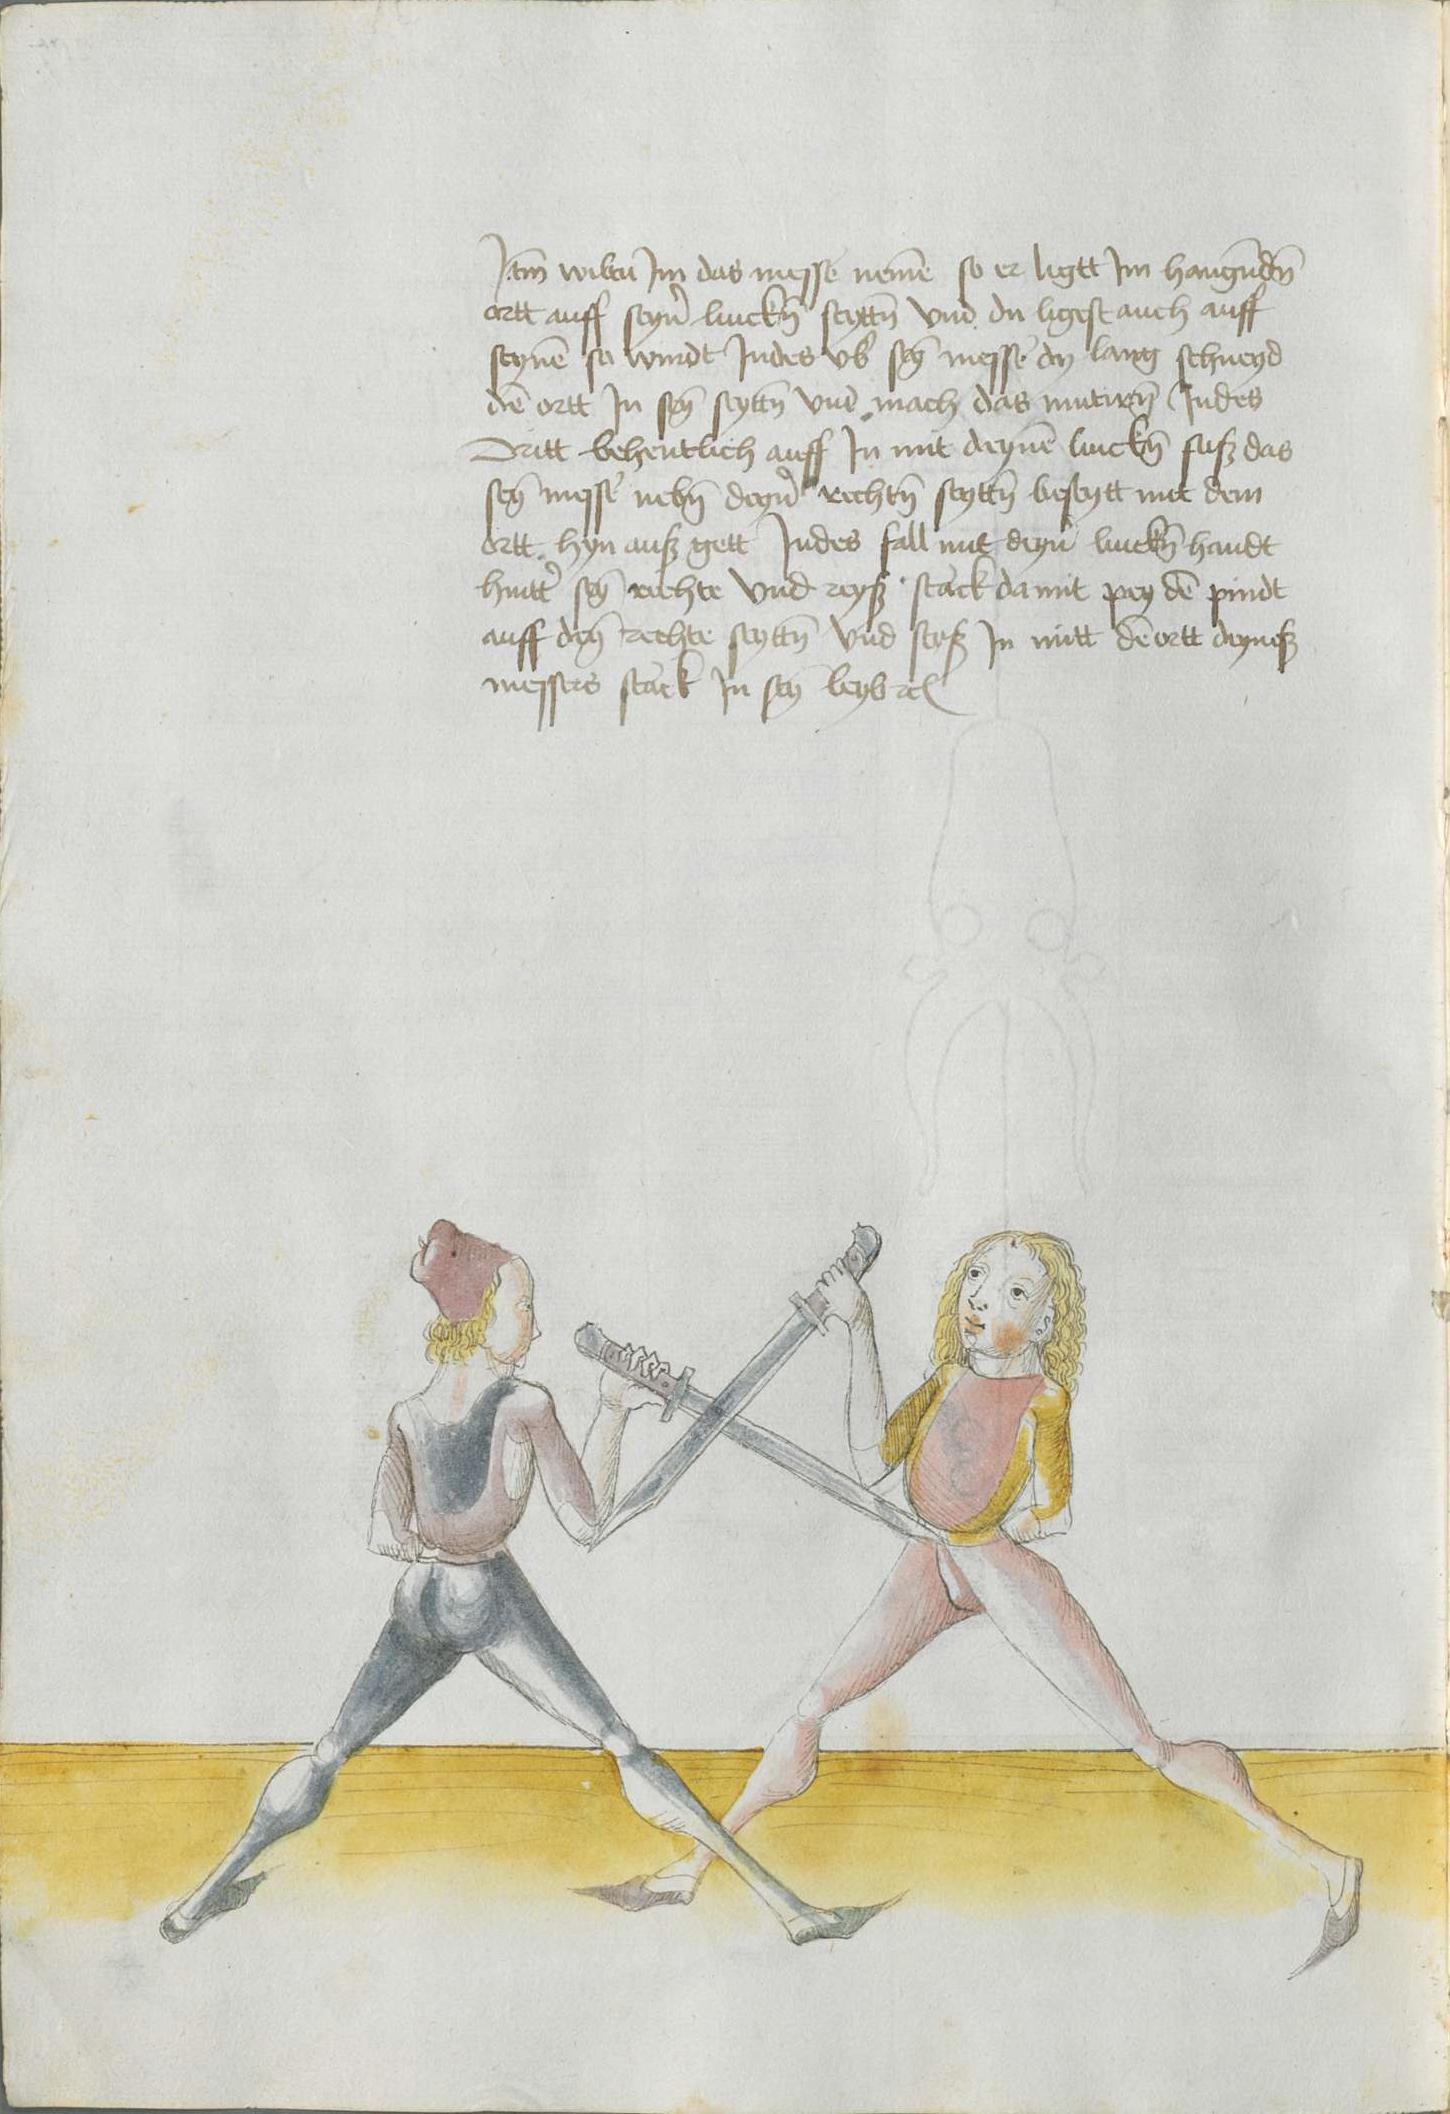 Itm̄ wiltu Im das messe nemē so er ligtt Im hangn̄dn̄
ortt auff seyn̄ linckn̄ seyttn̄ vnd du ligest auch auff
seynē so windt Indes vb̄ seȳ messe dy lang schneyd
dē ortt In seȳ seyttn̄ vnd mach das mutirn̄ Indes
Dritt behentlich auff In mit deynē linckn̄ fuß das
seȳ messe nebn̄ deyn̄ rechtn̄ seyttn̄ beseytt mit dem
ortt hyn auß gett Indes fall mit deyn̄ linckn̄ handt
hintt̄ seȳ rechte vnd reyß starck da mit pey dē pindt
auff deȳ rechte seyttn̄ vnd stoß In mitt dē ortt deyneß
messers starck In seȳ leyb ꝛc